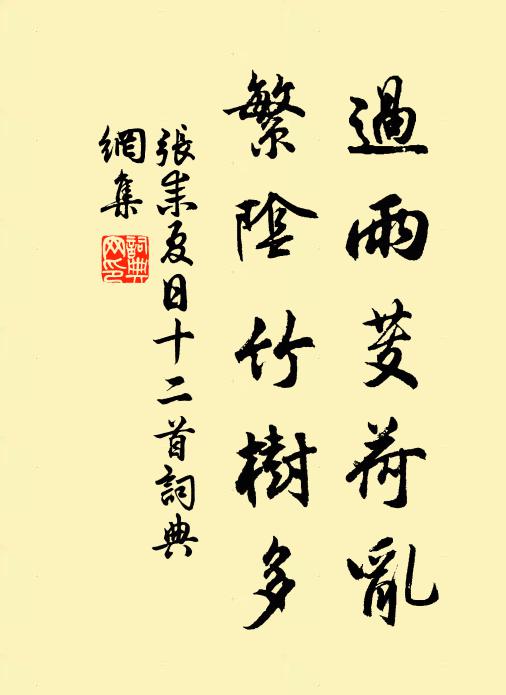 過雨芰荷亂
繁陰竹樹多
張耒夏日十二首詞典
網集
詞典
网印